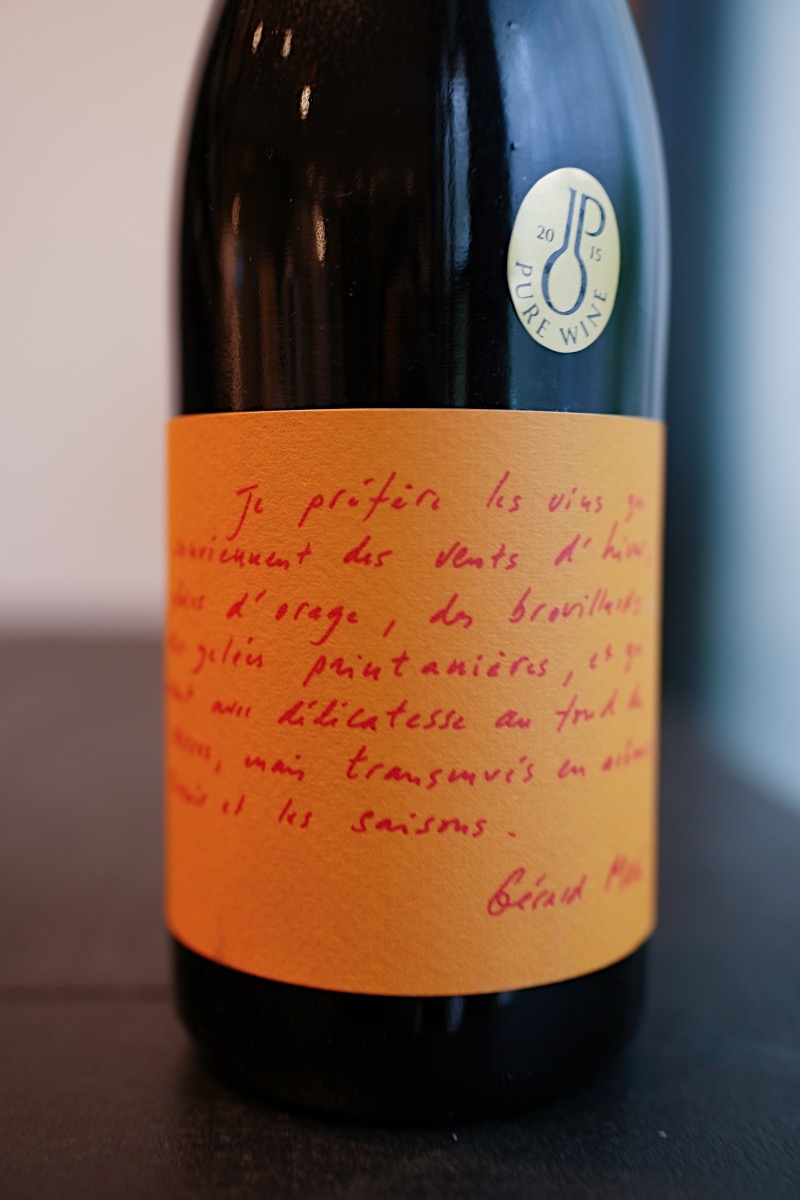 JP
20 15
PURE WINE
Je préfère les vins
des vents d'hiver,
d'orage, des brouillards
gelées printanières, et
avec délicatesse au fond de
mais transmués en
et les saisons.
Gérard